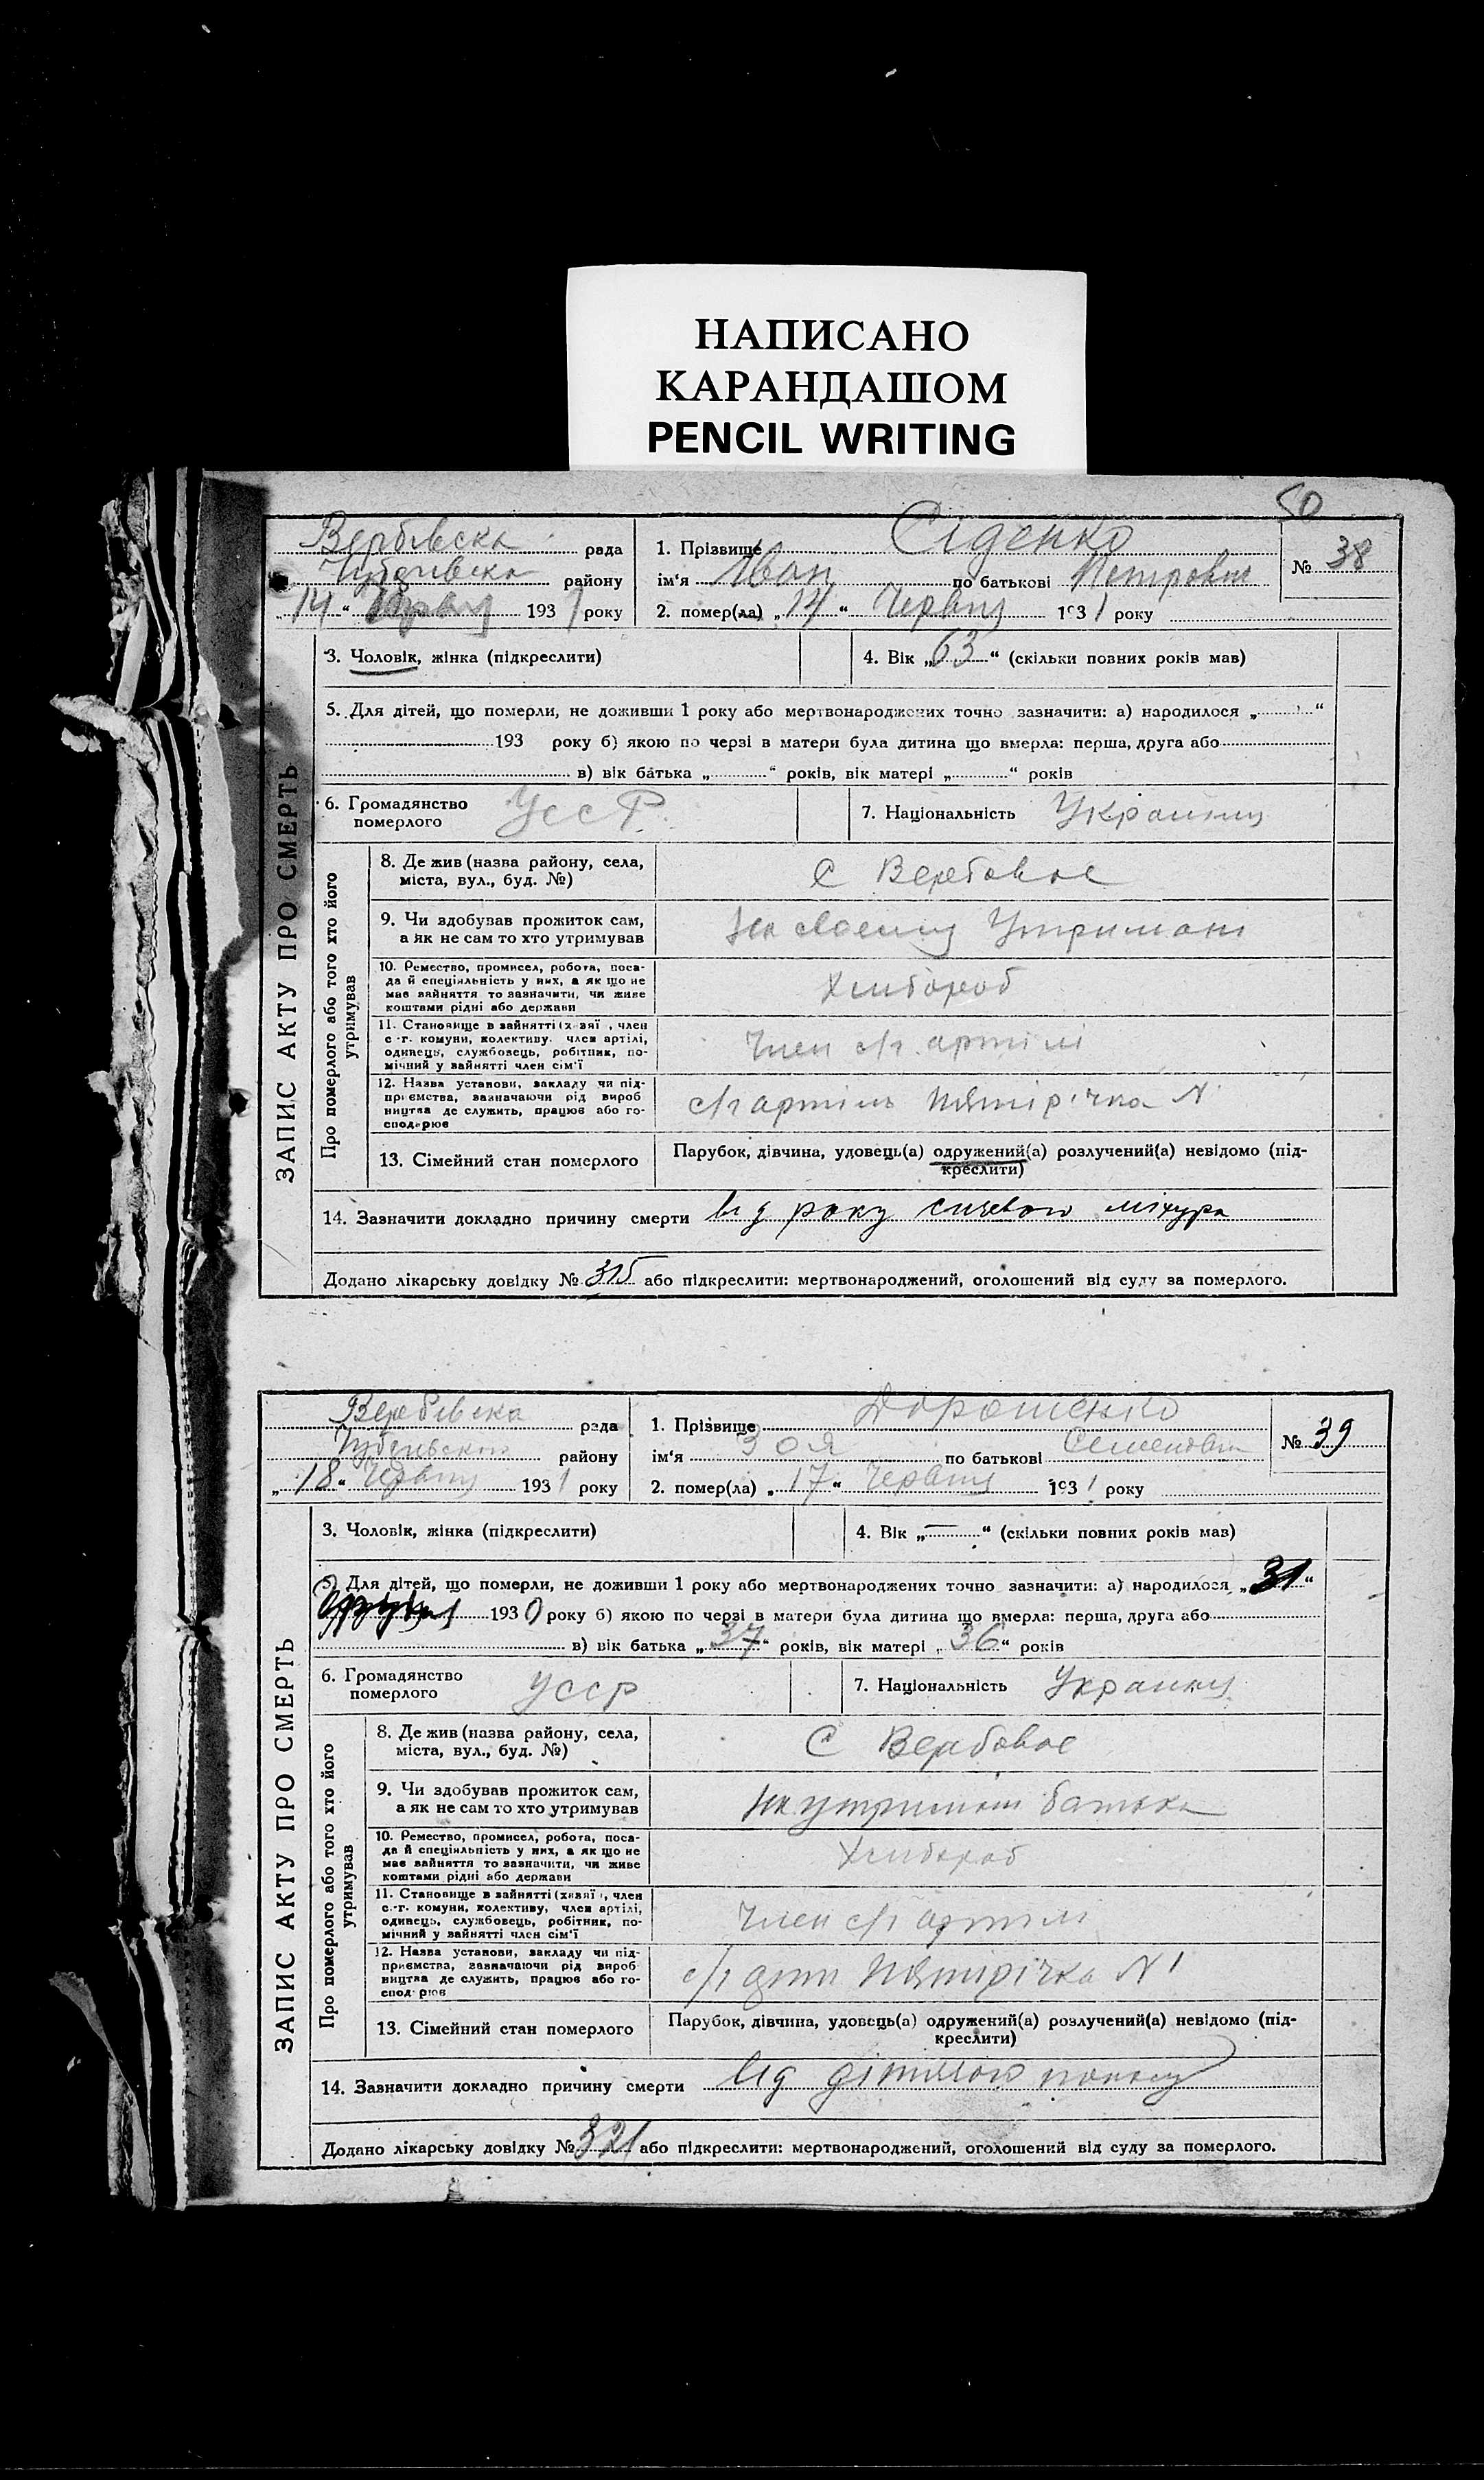 НАПИСАНО
КАРАНДАШОМ
PENCIL WRITING
50
Вербівска рада
району
„14“ Червня 1931 року
1. Прізвище Сіденко
ім‘я Іван по батькові Петрович
2. помер(ла) „14“ Червня 1931 року
№ 38
3. Чоловік, жінка (підкреслити)
4. Вік „63“ (скільки повних років мав)
5. Для дітей, що померли, не доживши 1 року або мертвонароджених точно зазначити: а) народилося „ “
193 року б) якою по черзі в матери була дитина що вмерла: перша, друга або
в) вік батька „ “ років, вік матері „ “ років
6. Громадянство померлого УССР
7. Національність Украинец
ЗАПИС АКТУ ПРО СМЕРТЬ
Про померлого або того хто його утримував
8. Де жив (назва району, села,
міста, вул., буд. №)
С Вербовое
9. Чи здобував прожиток сам,
а як не сам то хто утримував
На своему Утримані
10. Ремество, промисел, робота, поса-
да й спеціяльність у них, а як що не
має зайняття то зазначити, чи живе
коштами рідні або держави
Хлибороб
11. Становище в зайнятті (хазяї, член
с.-г. комуни, колективу, член артілі,
одинець, службовець, робітник, по-
мічний у зайнятті член сім‘ї
Член с/г. артілі
12. Назва установи, закладу чи під-
приємства, зазначаючи рід вироб
ництва де служить, працює або го-
сподарює
с/г артиль Пятирічка N
13. Сімейний стан померлого
Парубок, дівчина, удовець(а) одружений(а) розлучений(а) невідомо (під-
креслити)
14. Зазначити докладно причину смерти від раку сичевого міхура
Додано лікарську довідку № 315 або підкреслити: мертвонароджений, оголошений від суду за померлого.
Вербівска рада
району
„18“ Червня 1931 року
1. Прізвище Дорошенко
ім‘я Зоя по батькові Семеновна
2. помер(ла) „17“ Червня 1931 року
№ 39
3. Чоловік, жінка (підкреслити)
4. Вік „—“ (скільки повних років мав)
5. Для дітей, що померли, не доживши 1 року або мертвонароджених точно зазначити: а) народилося „31“
1930 року б) якою по черзі в матери була дитина що вмерла: перша, друга або
в) вік батька „37“ років, вік матері „36“ років
6. Громадянство померлого УССР
7. Національність
ЗАПИС АКТУ ПРО СМЕРТЬ
Про померлого або того хто його утримував
8. Де жив (назва району, села,
міста, вул., буд. №)
С Вербовое
9. Чи здобував прожиток сам,
а як не сам то хто утримував
На утримані батька
10. Ремество, промисел, робота, поса-
да й спеціяльність у них, а як що не
має зайняття то зазначити, чи живе
коштами рідні або держави
Хлибороб
11. Становище в зайнятті (хазяї, член
с.-г. комуни, колективу, член артілі,
одинець, службовець, робітник, по-
мічний у зайнятті член сім‘ї
Член с/г артіли
12. Назва установи, закладу чи під-
приємства, зазначаючи рід вироб
ництва де служить, працює або го-
сподарює
с/г Пятирічка N 1
13. Сімейний стан померлого
Парубок, дівчина, удовець(а) одружений(а) розлучений(а) невідомо (під-
креслити)
14. Зазначити докладно причину смерти від дітячого поносу
Додано лікарську довідку № 321 або підкреслити: мертвонароджений, оголошений від суду за померлого.